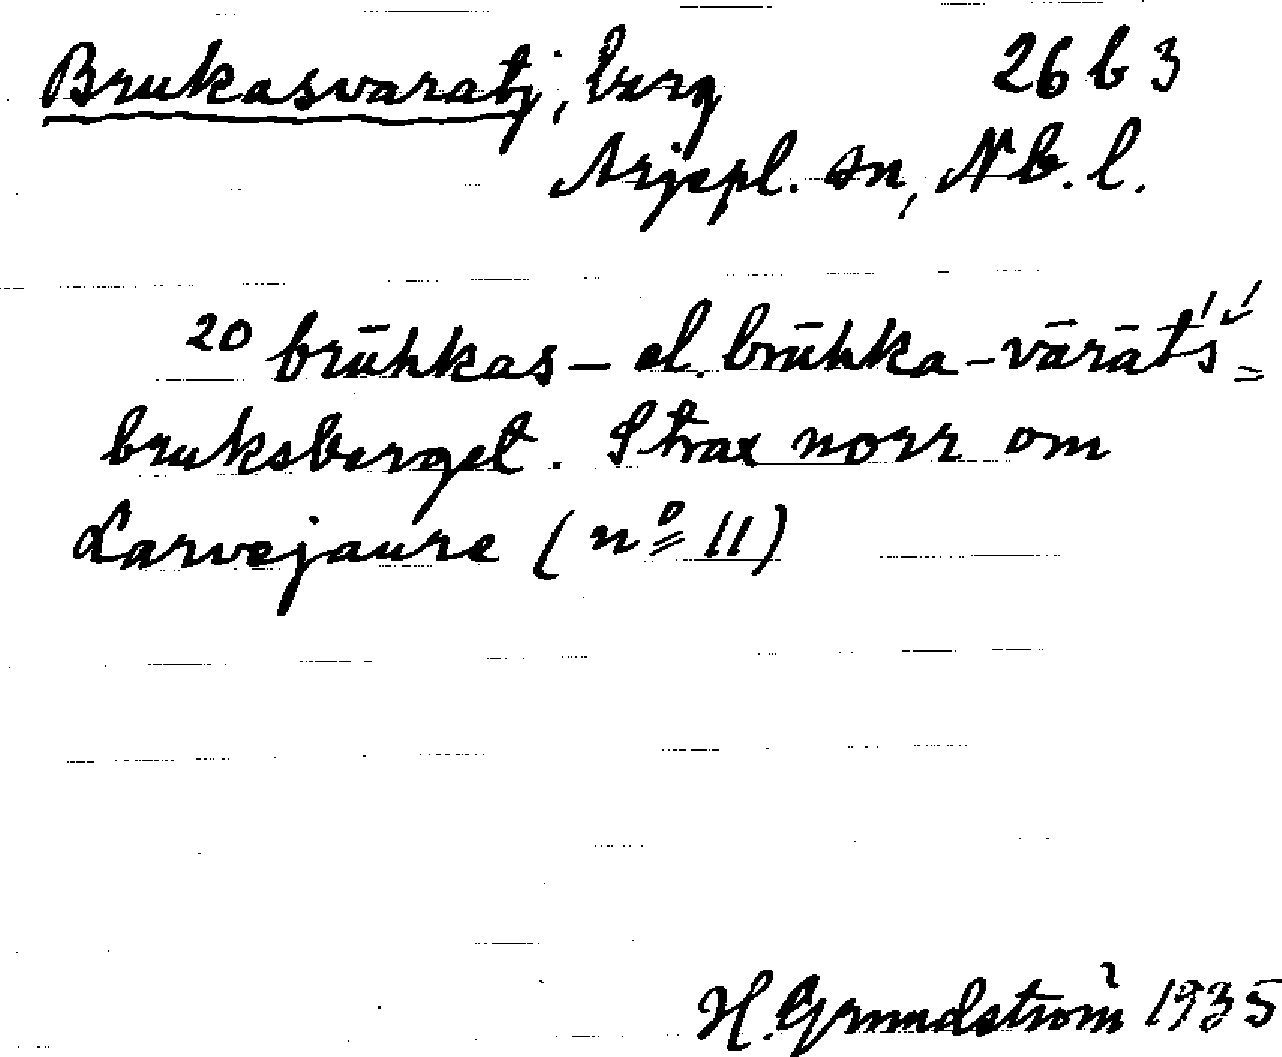 Brukasvaratj, berg 26 b 3
Arjepl. sn, Nb. l.
20 brūhkas- el. brūhka-vāràt́s̀ =
bruksberget. Strax norr om
Larvejaure (nº 11)
H. Grundström 1935